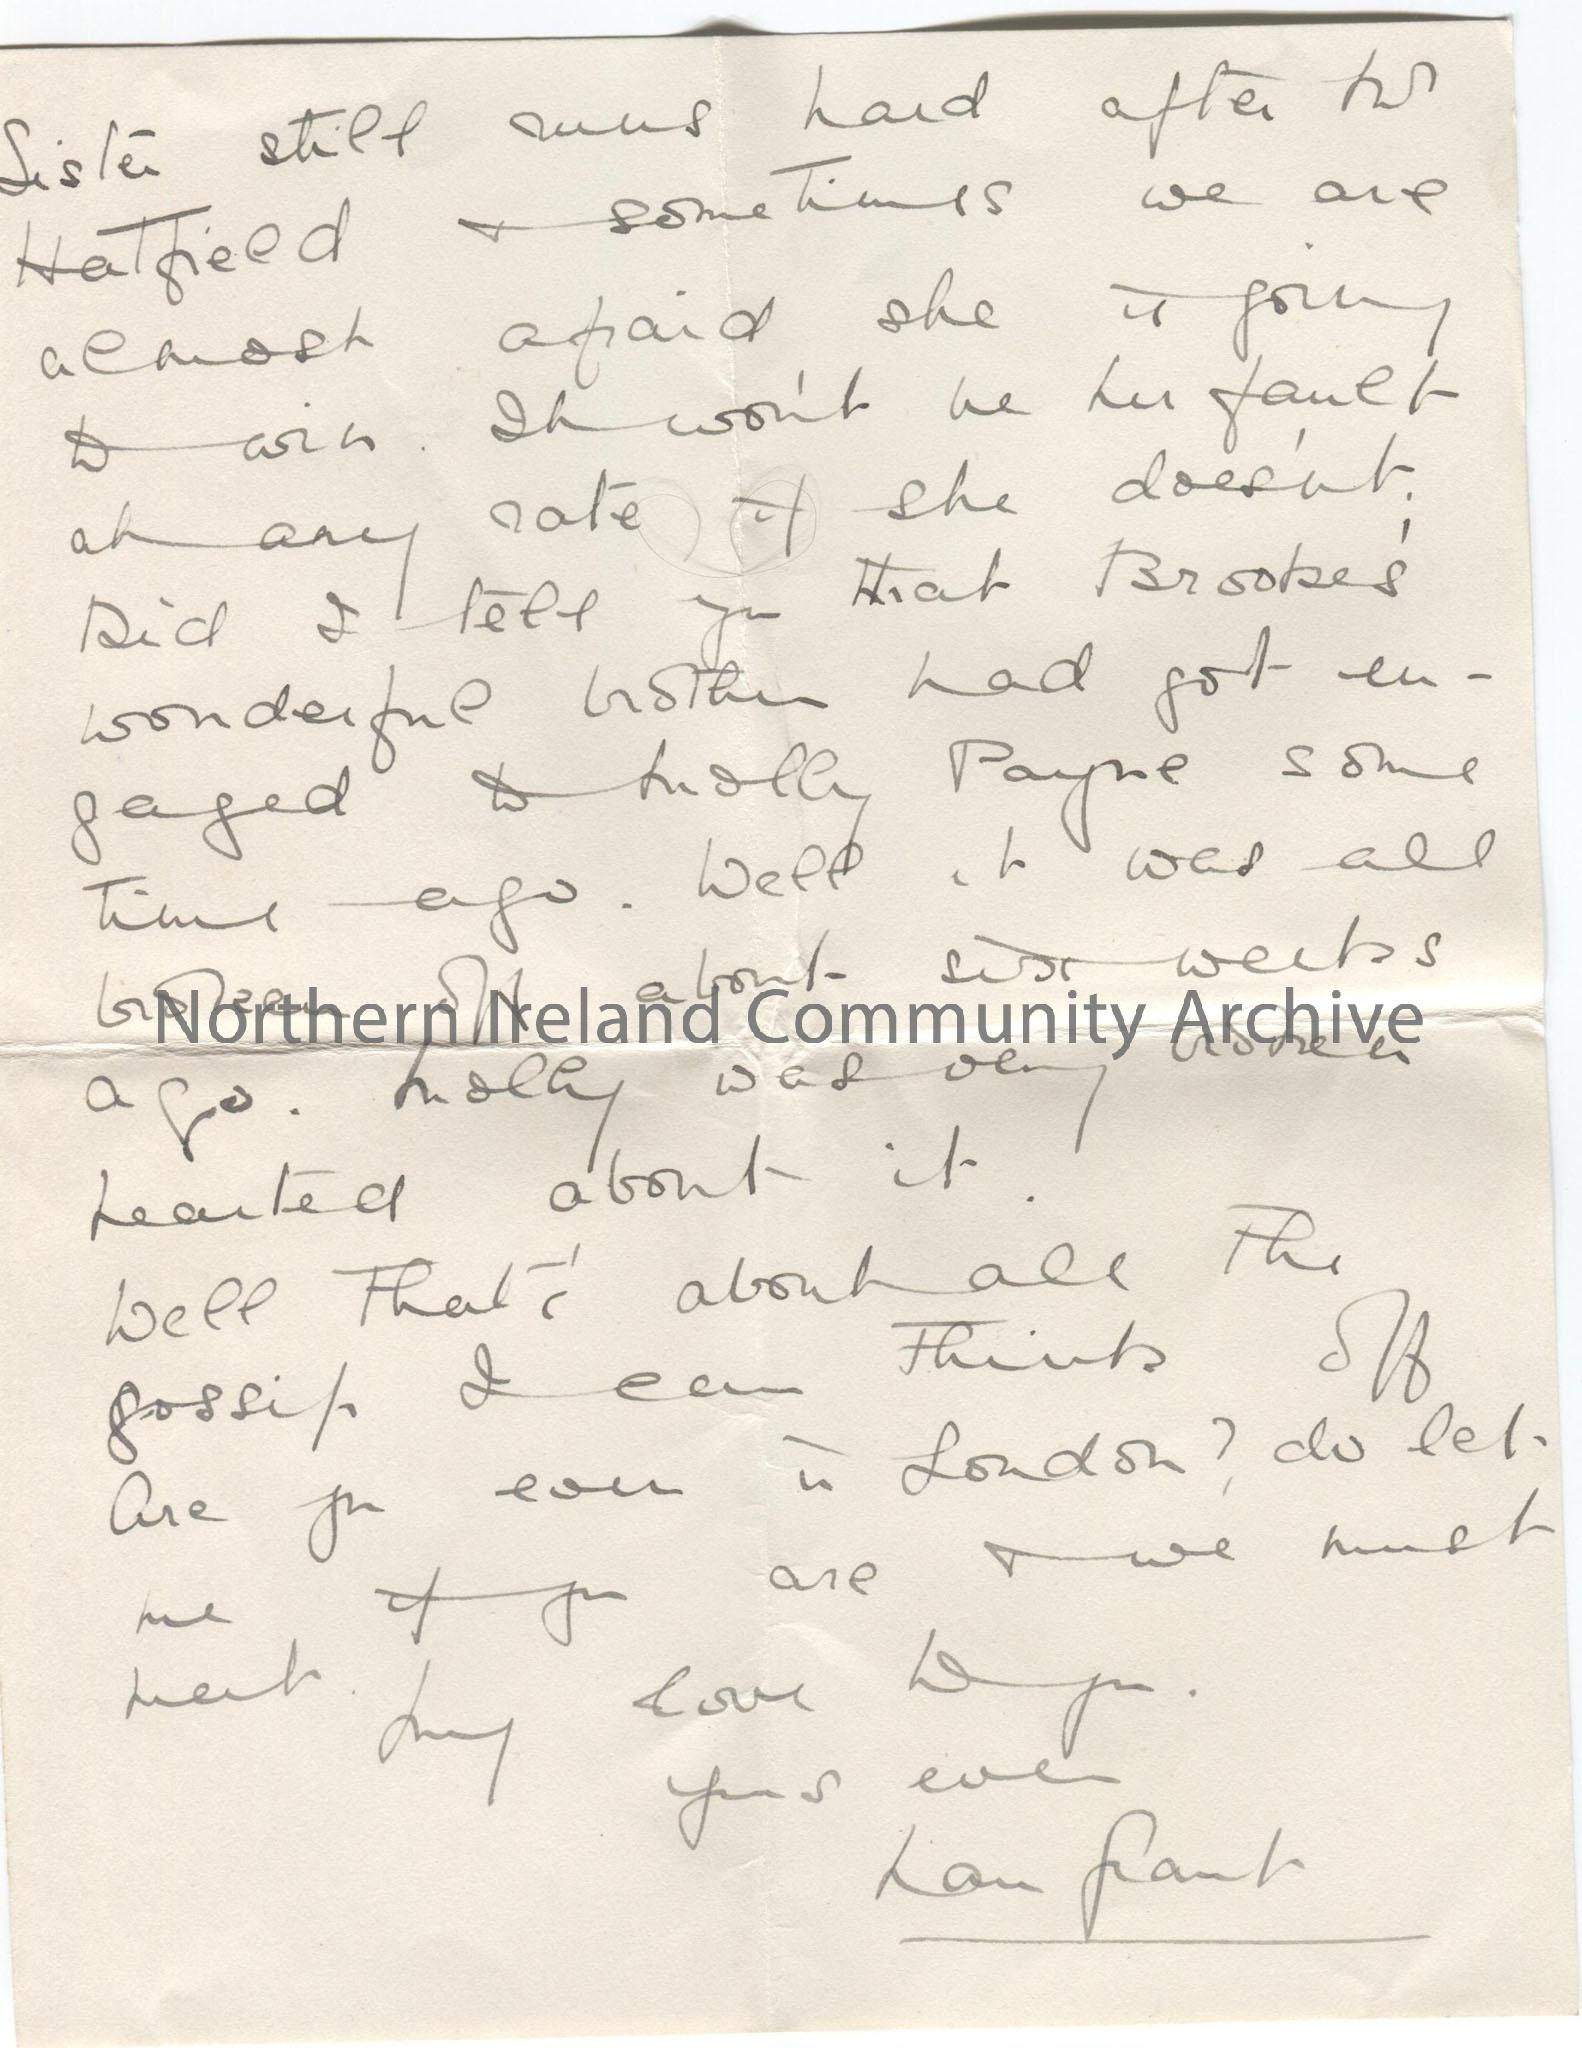 Sister still runs hard after Mr
Hatfield & sometimes we are
almost afraid she is going
to win. It won't be her fault
at any rate if she does'nt.
Did I tell you that Brooke's
wonderful brother had got en-
gaged to Molly Payne some
time ago. Well it was all
broken off about six weeks
Northern Ireland Community Archive
ago. Molly was very broken
hearted about it.
Well that's about all the
gossip I can think off
Are you ever in London? do let
me if you are & we must
meet. My love to you.
yours ever
Grant